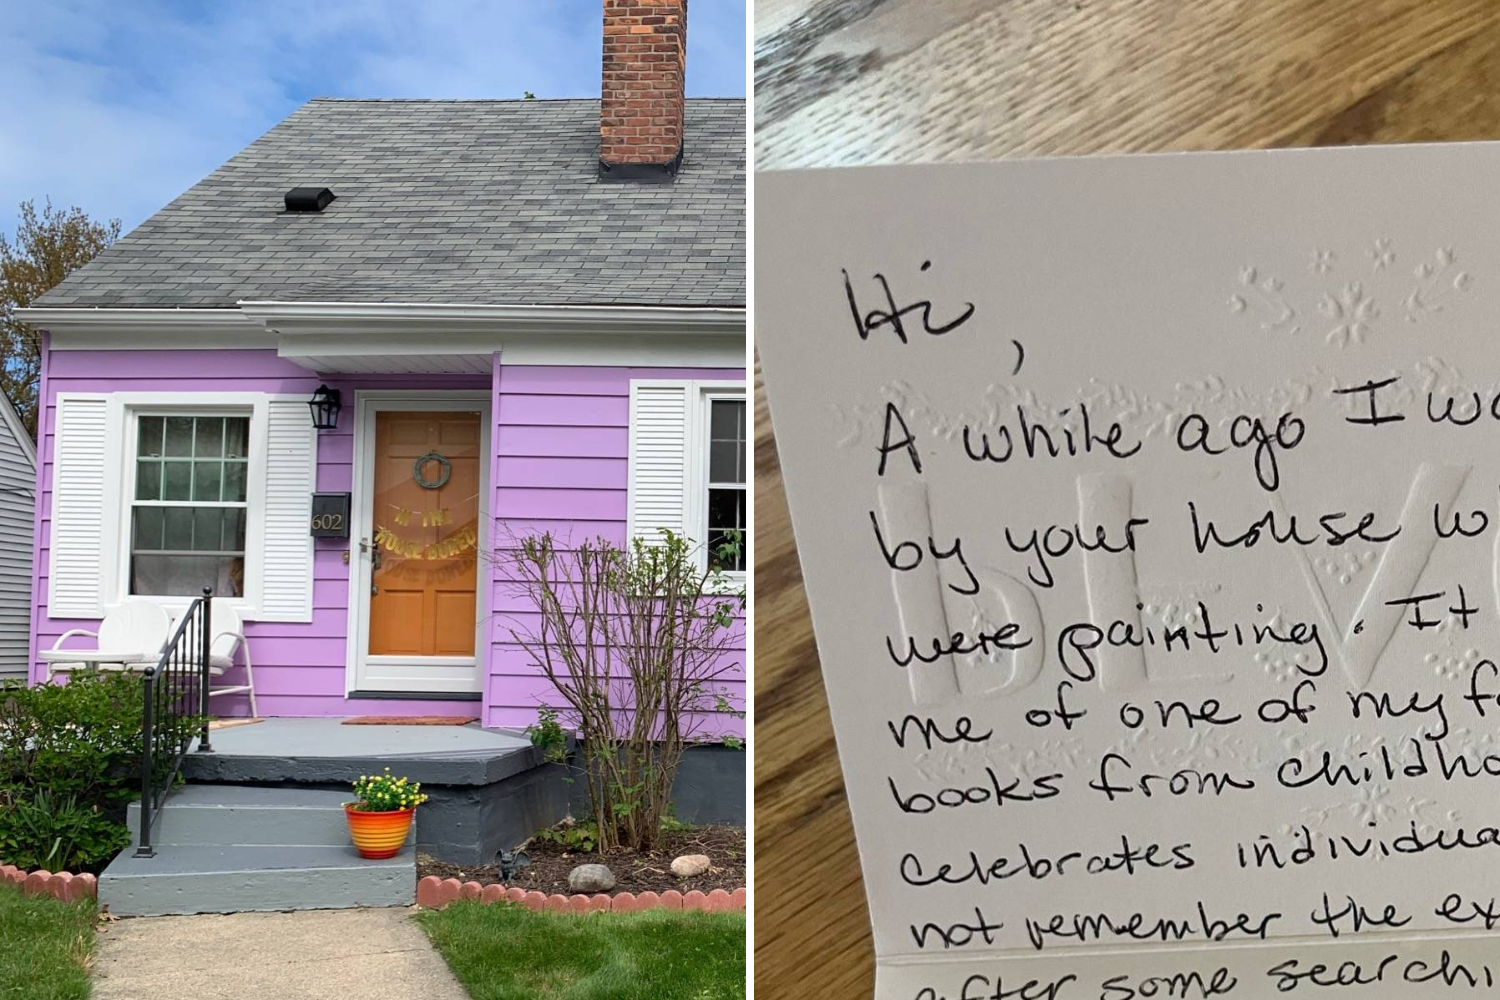 602
IN THE
HOUSE BORED
Hi,
A while ago I wa
by your house w
were painting. It
me of one of my fa
books from childho
celebrates individua
not remember the ex
after some searchi